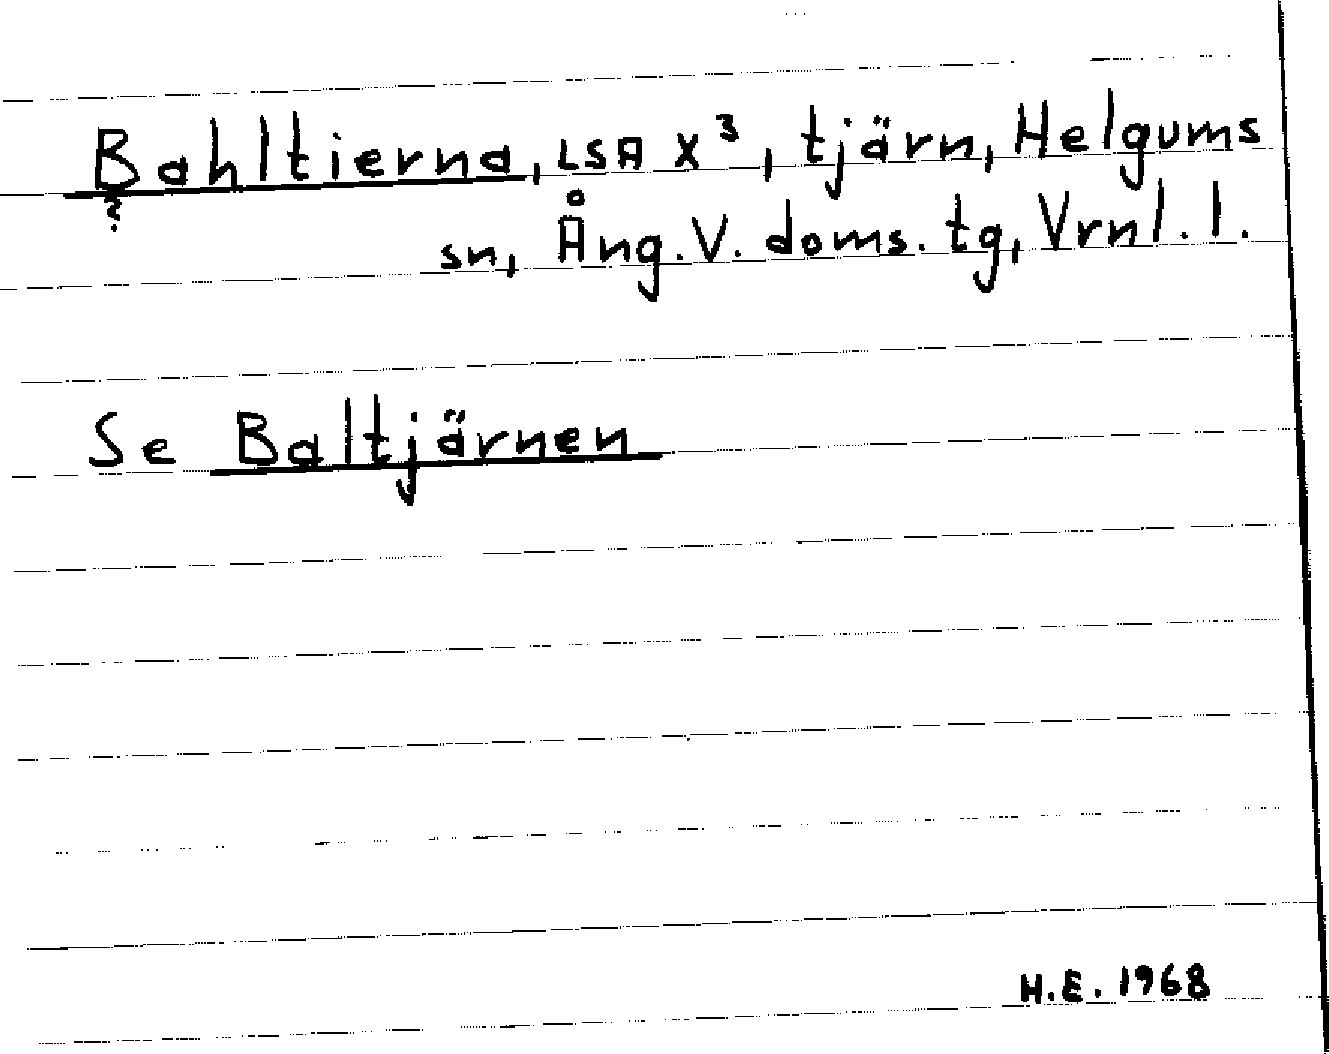 Bahltierna, LSA X³, tjärn, Helgums
?
sn, Ång. V. doms. tg, Vrnl. l.
Se Baltjärnen
H.E. 1968